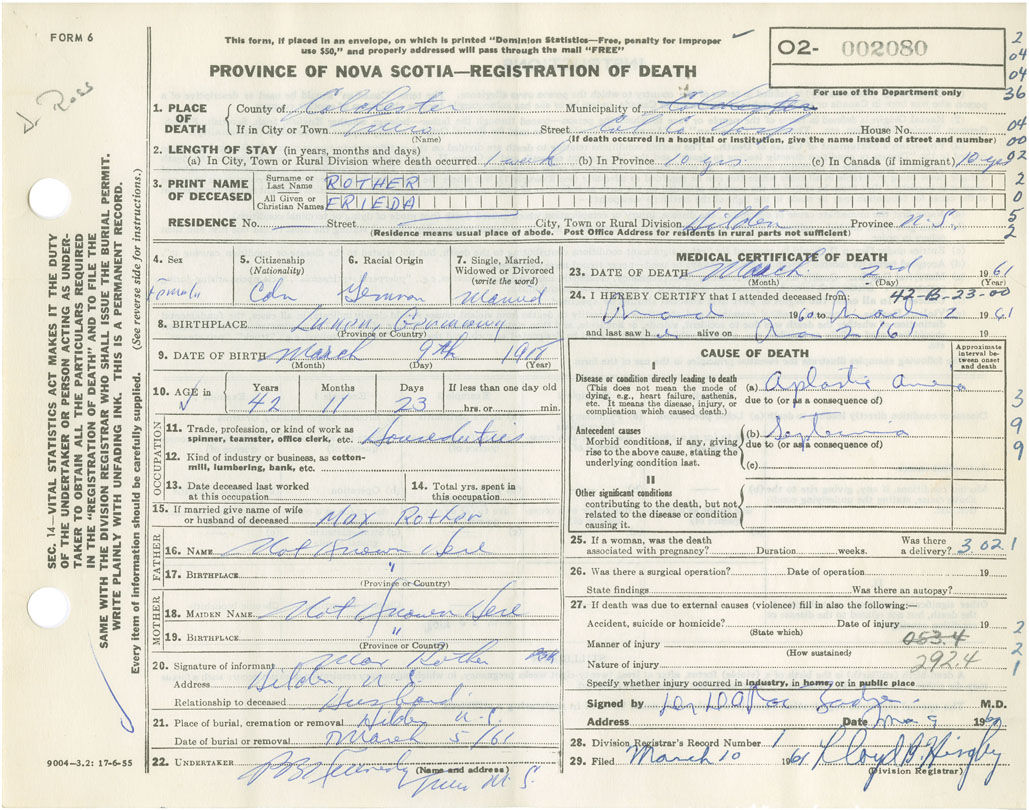 FORM 6
This form, if placed in an envelope, on which is printed "Dominion Statistics—Free, penalty for improper
use $50," and properly addressed will pass through the mail "FREE"
PROVINCE OF NOVA SCOTIA—REGISTRATION OF DEATH
O2- 002080
For use of the Department only
2
04
04
36
04
00
92
2
0
5
2
Dr. Ross
SEC. 14—VITAL STATISTICS ACT MAKES IT THE DUTY
OF THE UNDERTAKER OR PERSON ACTING AS UNDER-
TAKER TO OBTAIN ALL THE PARTICULARS REQUIRED
IN THE "REGISTRATION OF DEATH" AND TO FILE THE
SAME WITH THE DIVISION REGISTRAR WHO SHALL ISSUE THE BURIAL PERMIT.
WRITE PLAINLY WITH UNFADING INK. THIS IS A PERMANENT RECORD.
Every item of information should be carefully supplied. (See reverse side for instructions.)
1. PLACE OF DEATH
County of Colchester Municipality of Colchester
If in City or Town Truro Street Col Co Hosp House No.
(Name) (If death occurred in a hospital or institution, give the name instead of street and number)
2. LENGTH OF STAY (in years, months and days)
(a) In City, Town or Rural Division where death occurred 1 week (b) In Province 10 yrs. (c) In Canada (if immigrant) 10 yrs
3. PRINT NAME OF DECEASED
Surname or Last Name ROTHER
All Given or Christian Names FRIEDA
RESIDENCE No. Street City, Town or Rural Division Hilden Province N.S.
(Residence means usual place of abode. Post Office Address for residents in rural parts not sufficient)
4. Sex Female
5. Citizenship (Nationality) Cdn
6. Racial Origin German
7. Single, Married, Widowed or Divorced (write the word) Married
8. BIRTHPLACE Germany
(Province or Country)
9. DATE OF BIRTH March 9th
(Month) (Day) (Year)
10. AGE Years 42 Months 11 Days 23 If less than one day old hrs. or min.
OCCUPATION
11. Trade, profession, or kind of work as spinner, teamster, office clerk, etc. Houseduties
12. Kind of industry or business, as cotton-mill, lumbering, bank, etc.
13. Date deceased last worked at this occupation
14. Total yrs. spent in this occupation
15. If married give name of wife or husband of deceased Max Rother
FATHER
16. NAME Not Known Here
17. BIRTHPLACE "
(Province or Country)
MOTHER
18. MAIDEN NAME Not Known Here
19. BIRTHPLACE "
(Province or Country)
20. Signature of informant Max Rother
Address Hilden N.S.
Relationship to deceased Husband
21. Place of burial, cremation or removal Hilden N.S.
Date of burial or removal March 5/61
22. UNDERTAKER Kennedy
(Name and address) Truro N.S.
9004—3.2: 17-6-55
MEDICAL CERTIFICATE OF DEATH
23. DATE OF DEATH March 2nd 1961
(Month) (Day) (Year)
24. I HEREBY CERTIFY that I attended deceased from: 42-B-23-00
1960 to March 2 1961
and last saw her alive on Mar 2 161
CAUSE OF DEATH
Approximate interval between onset and death
I
Disease or condition directly leading to death
(This does not mean the mode of dying, e.g., heart failure, asthenia, etc. It means the disease, injury, or complication which caused death.)
(a) Aplastic
due to (or as a consequence of)
Antecedent causes
Morbid conditions, if any, giving rise to the above cause, stating the underlying condition last.
(b)
due to (or as a consequence of)
(c)
II
Other significant conditions
contributing to the death, but not related to the disease or condition causing it.
3
9
9
25. If a woman, was the death associated with pregnancy? Duration weeks. Was there a delivery? 3 02 1
26. Was there a surgical operation? Date of operation 19
State findings Was there an autopsy?
27. If death was due to external causes (violence) fill in also the following:—
Accident, suicide or homicide? Date of injury 19 2
(State which)
Manner of injury 053.4 2
(How sustained)
Nature of injury 292.4 1
Specify whether injury occurred in industry, in home, or in public place
Signed by M.D.
Address Date Mar 9 196
28. Division Registrar's Record Number 1
29. Filed March 10 1961
(Division Registrar)